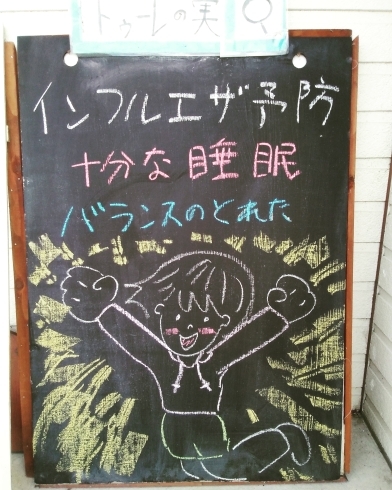 トゥーレの実
インフルエザ予防
十分な睡眠
バランスのとれた